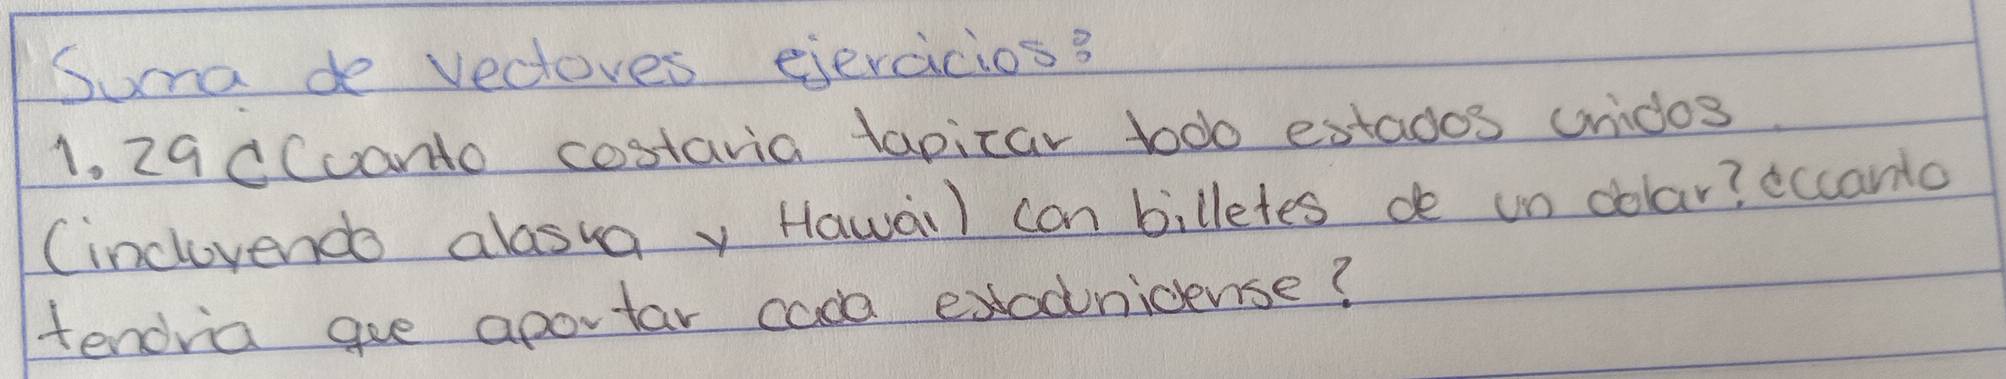 Suma de vectores ejercicios:
1.29 ¿Cuanto costaria tapizar todo estados unidos
(incluyendo alaska y Hawái) con billetes de un dolar? ¿cuanto
tendria que aportar cada estadunidense?